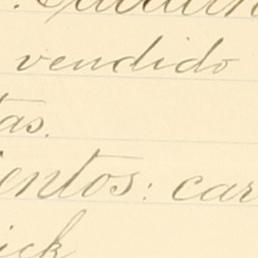 vendido
tas.
ientos: car
ick